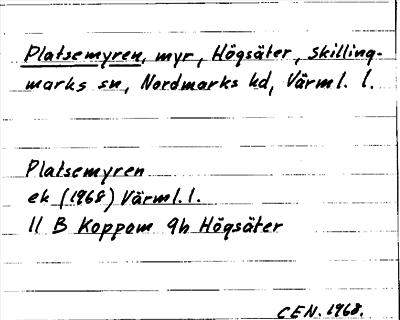 Platsemyren, myr, Högsäter, Skilling-
marks sn, Nordmarks hd, Värml. l.
Platsemyren
ek (1968) Värml. l.
11 B Koppom 9h Högsäter
CEN. 1968.